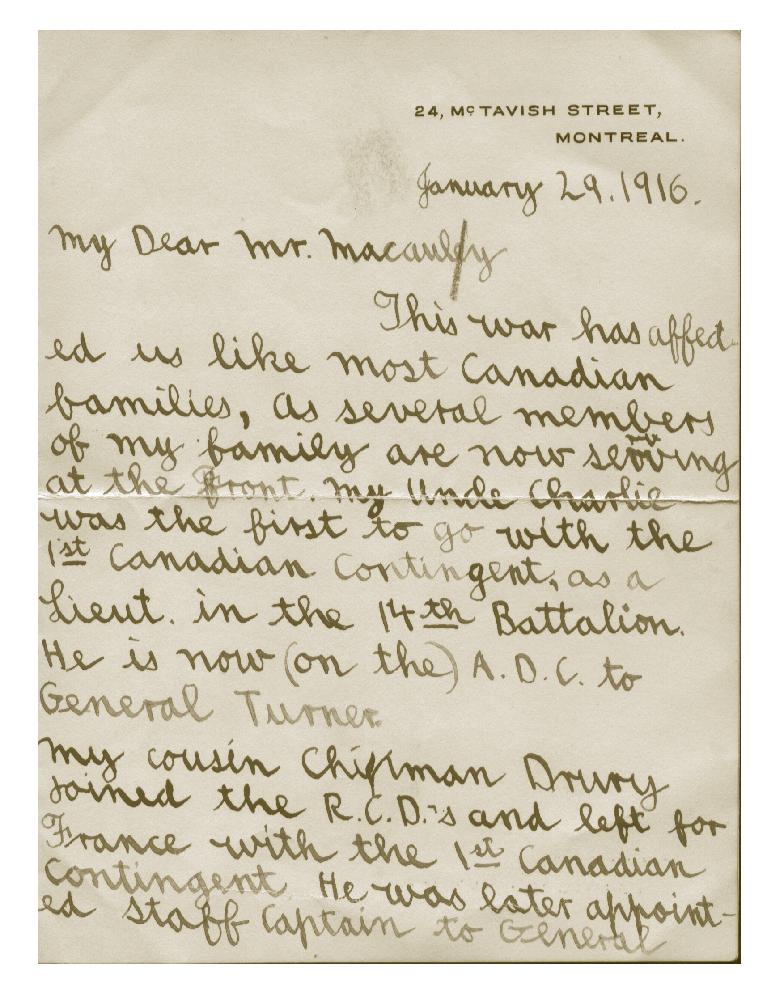 24, McTAVISH STREET,
MONTREAL.
January 29. 1916.
My Dear Mr. Macauley
This war has affect-
ed us like most Canadian
families, As several members
of my family are now serving
at the Front. My Uncle Charlie
was the first to go with the
1st Canadian Contingent, as a
Lieut. in the 14th Battalion.
He is now (on the) A.D.C. to
General Turner.
My cousin Chipman Drury
joined the R.C.D.'s and left for
France with the 1st Canadian
Contingent. He was later appoint-
ed staff Captain to General